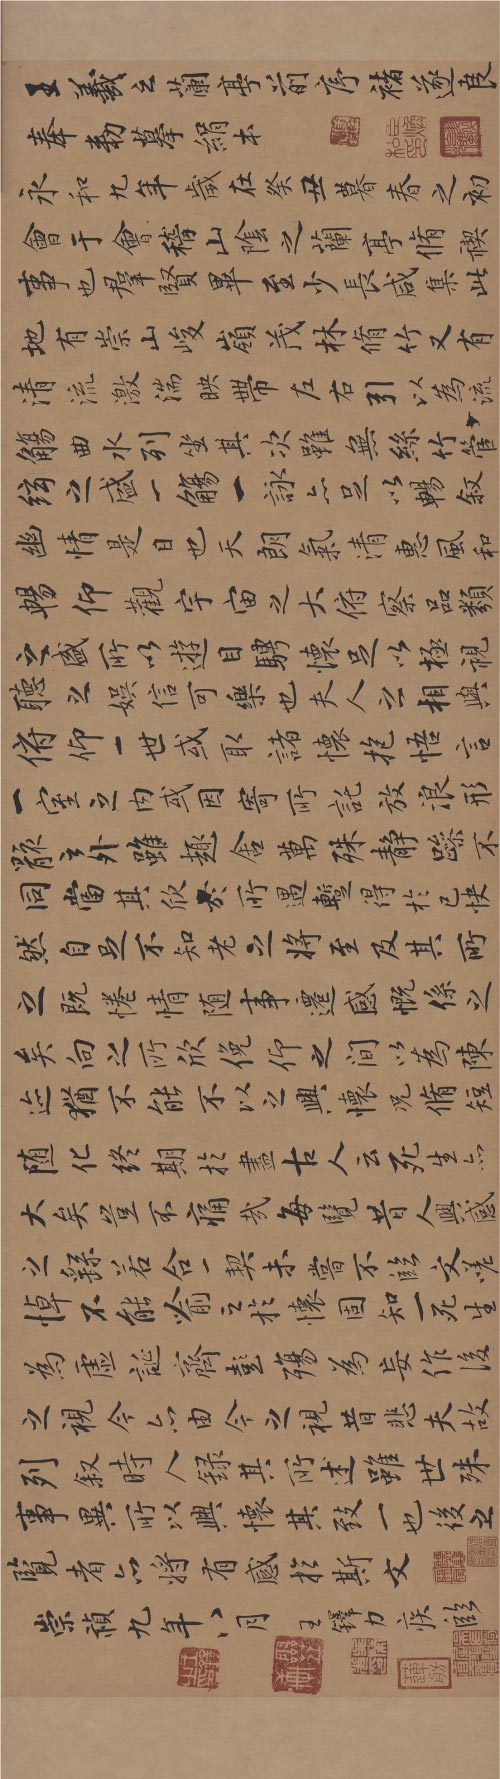 王羲之蘭亭前序褚遂良
奉勅摹絹本
永和九年歲在癸丑暮春之初
會于會稽山陰之蘭亭脩禊
事也羣賢畢至少長咸集此
地有崇山峻嶺茂林脩竹又有
清流激湍映帶左右引以為流
觴曲水列坐其次雖無絲竹管
絃之盛一觴一詠亦足以暢敘
幽情是日也天朗氣清惠風和
暢仰觀宇宙之大俯察品類
之盛所以遊目騁懷足以極視
聽之娛信可樂也夫人之相與
俯仰一世或取諸懷抱悟言
一室之内或因寄所託放浪形
骸之外雖趣舍萬殊静躁不
同當其欣於所遇暫得於己快
然自足不知老之將至及其所
之既惓情随事遷感慨係之
矣向之所欣俛仰之間以為陳
迹猶不能不以之興懷況脩短
随化終期於盡古人云死生亦
大矣豈不痛哉每覽昔人興感
之繇若合一契未嘗不臨文嗟
悼不能喻之於懷固知一死生
為虛誕齊彭殤為妄作後
之視今亦由今之視昔悲夫故
列敘時人録其所述雖世殊
事異所以興懷其致一也後之
覽者亦將有感於斯文
崇禎九年八月 王鐸力疾臨